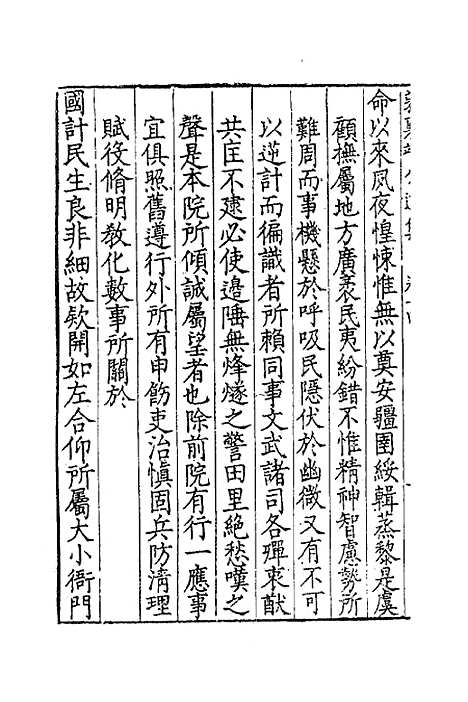 命以來夙夜惶悚惟無以奠安疆圉綏輯蒸黎是虞
顧撫屬地方廣袤民夷紛錯不惟精神智慮勢所
難周而事機懸於呼吸民隱伏於幽微又有不可
以逆計而徧識者所賴同事文武諸司各殫衷猷
共匡不逮必使邉陲無烽燧之警田里絕愁嘆之
聲是本院所傾誠屬望者也除前院有行一應事
宜俱照舊遵行外所有申飭吏治愼固兵防淸理
賦役脩明敎化數事所關於
國計民生良非細故欵開如左合仰所屬大小衙門